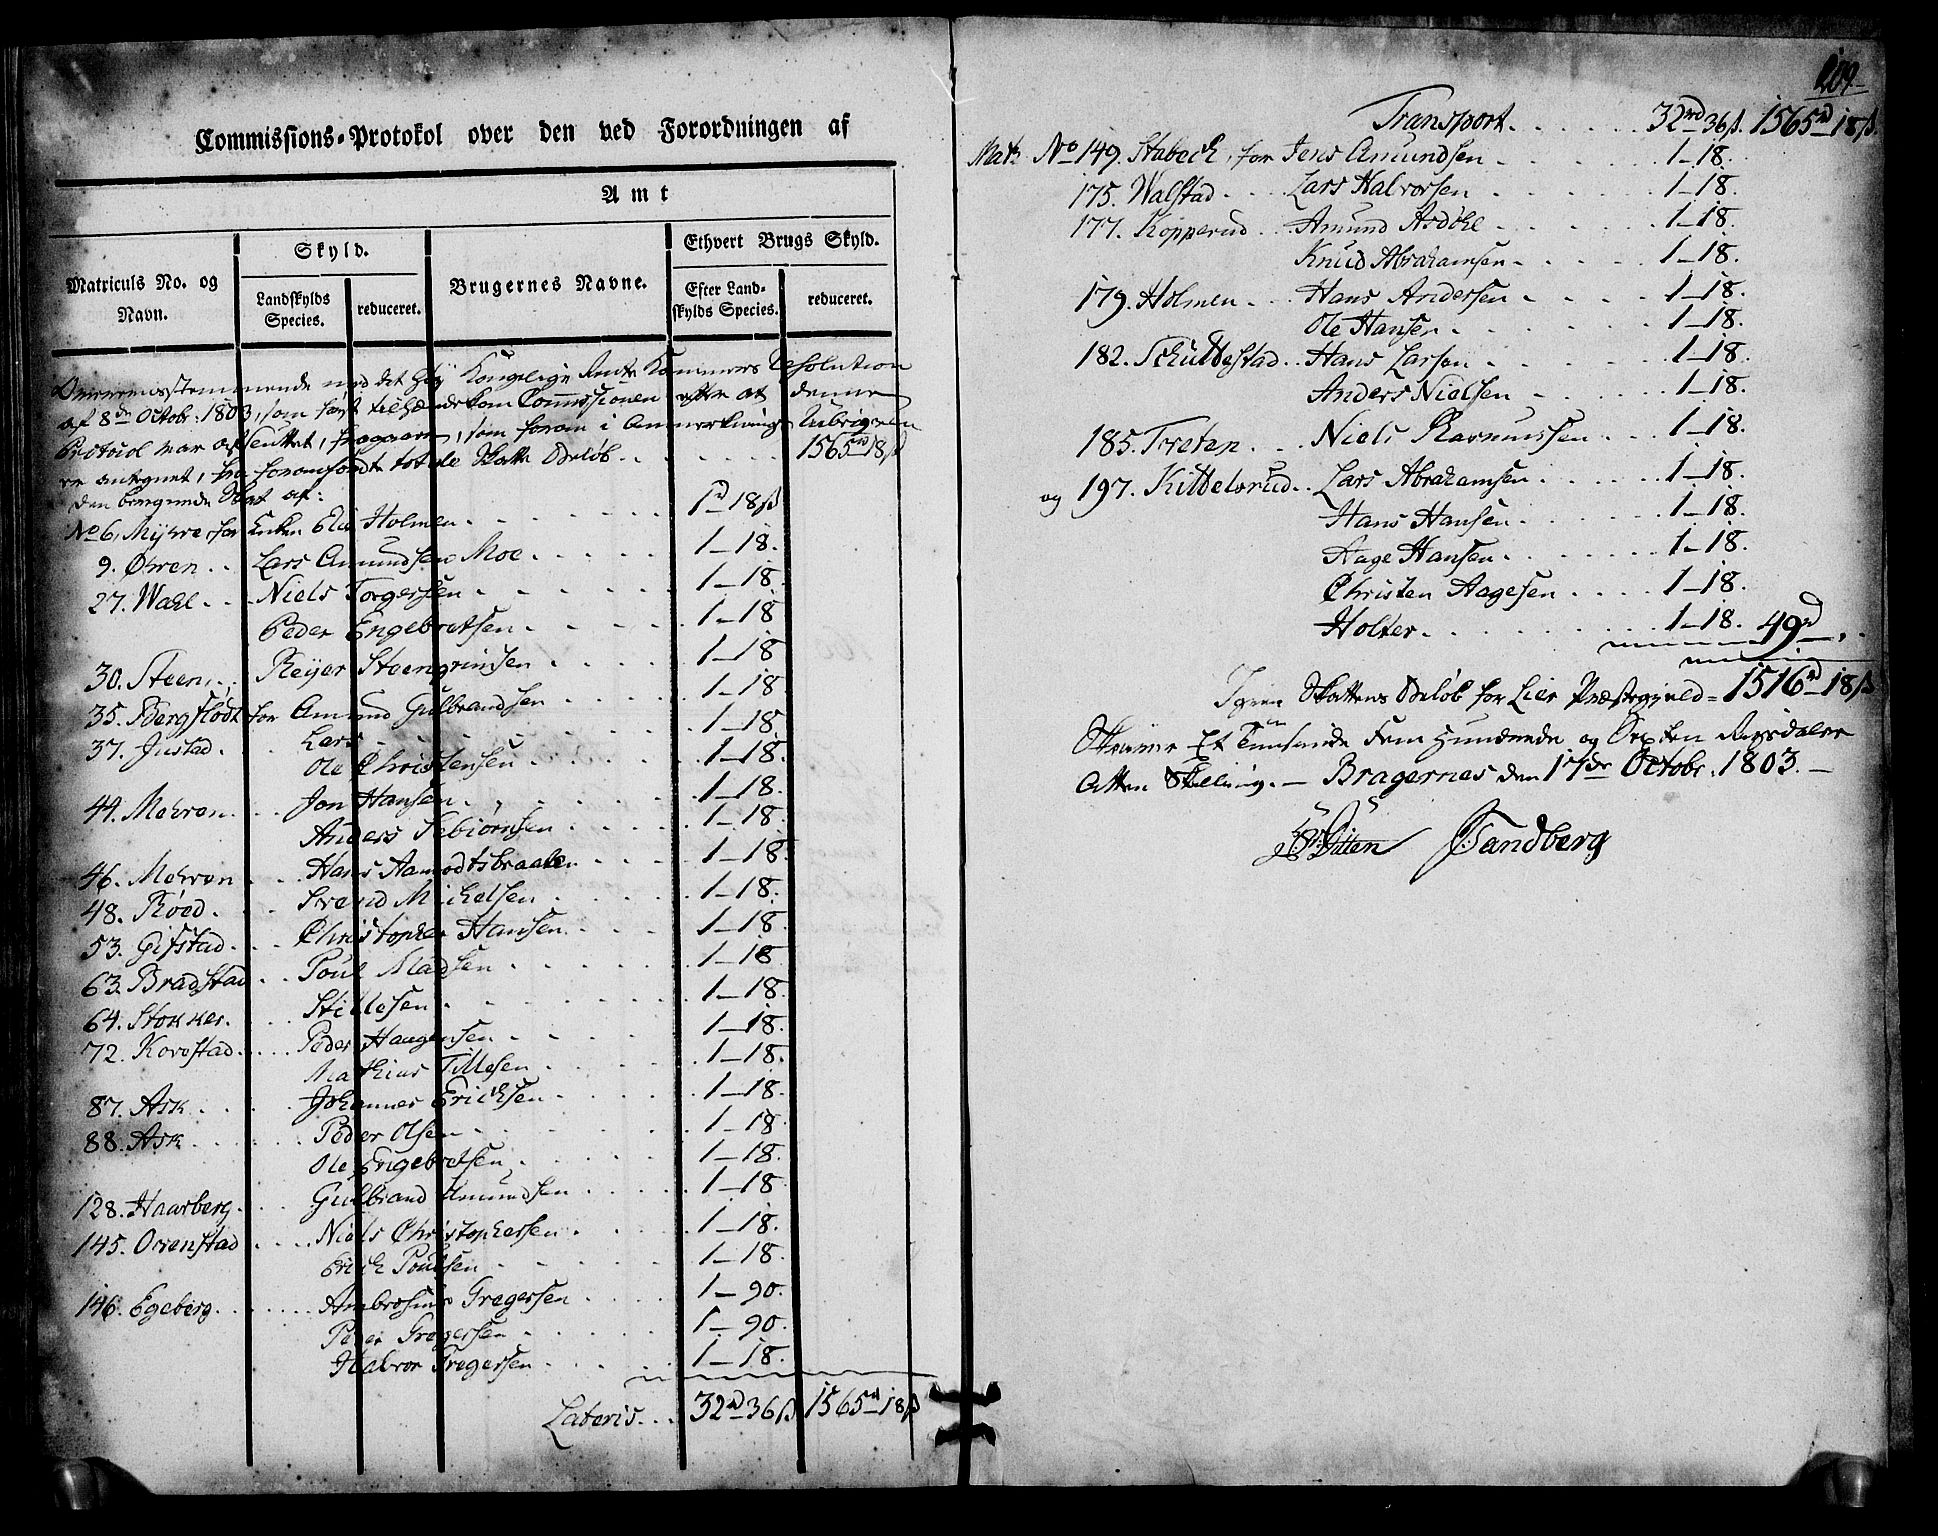 Commissions-Protokol over den ved Forordningen af
Amt
Matriculs No. og Navn.
Skyld.
Landskylds Species.
reduceret.
Brugernes Navne.
Ethvert Brugs Skyld.
Efter Landskylds Species.
reduceret.
Overeensstemmende med det Høÿ Kongelige Rente Kammers Resolution
af 8de Octobr: 1803, som først tilhændekom Commissionen efter at denne
Protocol var afsluttet, fragaaer, som foran i Anmerknings Rubriqven
er antegnet, fra foranførdte totale Skatte Beløb . . . 1565rd 18ß
den beregnede Skat af:
No 6, Myhre, for Enken Elie Holmen . . . 1d - 18ß
9. Øvren . . Lars Amundsen Moe . . . 1 - 18.
27. Wahl . . . Niels Torgersen . . . 1 - 18.
Peder Engebretsen . . . 1 - 18
30. Steen . . Reyer Steengrimsen . . . 1 - 18
35. Bergflødt for Amund Gulbrandsen . . . 1 - 18
37. Justad . . . Lars . . . 1 - 18
Ole Christensen . . . 1 - 18.
44. Mehren . . . Jon Hansen . . . 1 - 18.
Anders Tebiørnsen . . . 1 - 18.
46. Mehren . . . Hans Aamodtsbraaten . . . 1 - 18.
48. Røed . . . Svend Michelsen . . . 1 - 18.
53. Gifstad . . . Christopher Hansen . . . 1 - 18.
63. Bradstad . . Poul Madsen . . . 1 - 18
64. Stokker . . . Stillesen . . . 1 - 18.
72. Kovestad . . . Peder Haagensen . . . 1 - 18
Mathias Tillesen . . . 1 - 18.
87. Ask . . . Johannes Erichsen . . . 1 - 18.
88. Ask . . . Peder Olsen . . . 1 - 18.
Ole Engebretsen . . . 1 - 18.
128. Haarberg . . . Gulbrand Amundsen . . . 1 - 18
145. Ovenstad . . . Niels Christophersen . . . 1 - 18.
Erich Poulsen . . . 1 - 18.
146. Egeberg . . . Ambrosius Gregersen . . . 1 - 90.
Peder Gregersen . . . 1 - 90.
Halvor Gregersen . . . 1 - 18.
Lateris . . . 32rd - 36ß 1565rd - 18ß
209
Transport . . . 32rd - 36ß. 1565rd 18ß.
Matr. No 149. Stabech, for Jens Amundsen . . . 1 - 18.
175. Walstad . . . Lars Halvorsen . . . 1 - 18.
177. Kopperud . . . Amund Asdøhl . . . 1 - 18.
Knud Abrahamsen . . . 1 - 18.
179. Holmen . . . Hans Andersen . . . 1 - 18.
Ole Hansen . . . 1 - 18.
182. Schuttestad . . Hans Larsen . . . 1 - 18.
Anders Nielsen . . . 1 - 18.
185. Treten . . . Niels Rasmussen . . . 1 - 18.
og 197. Kittelsrud . . Lars Abrahamsen . . . 1 - 18.
Hans Hansen . . . 1 - 18.
Aage Hansen . . . 1 - 18.
Christen Aagesen . . . 1 - 18.
Holter . . . 1 - 18. 49d - , .
Igien Skattens Beløb for Lier Præstegield = 1516rd - 18ß
Skriver Et Tuusinde Fem Hundrede og Sexten Rigsdaler
Atten Skilling. - Bragernes den 17de Octobr. 1803. -
Ditten Sandberg